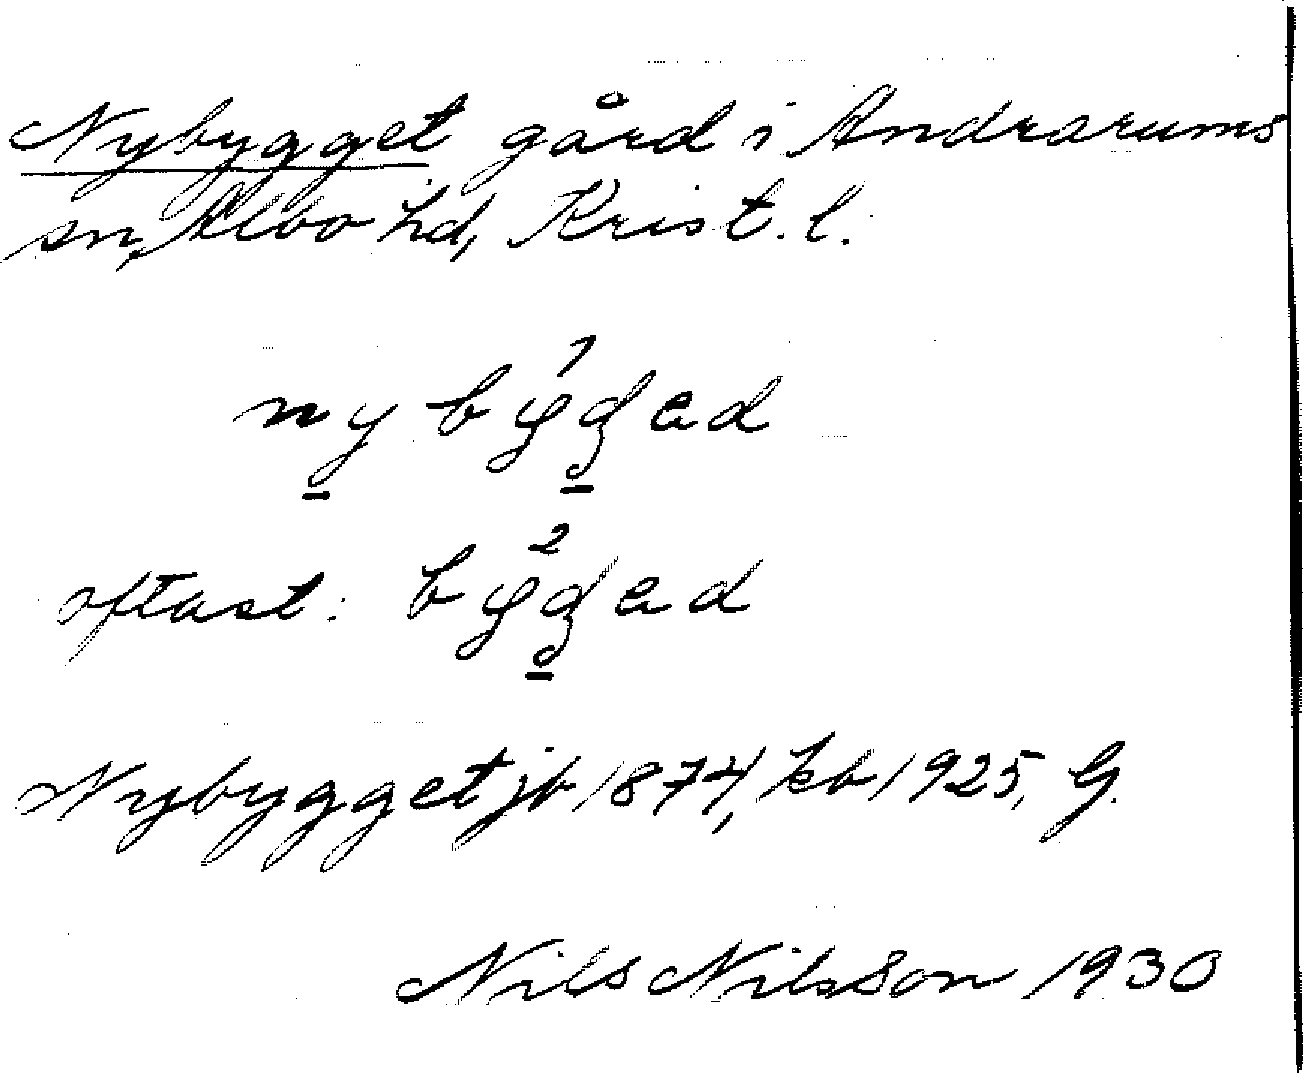 Nybygget gård i Andrarums
sn, Albo hd, Krist. l.
ny bygad
oftast: bygad
Nybygget jb 1874, kb 1925, G.
Nils Nilsson 1930